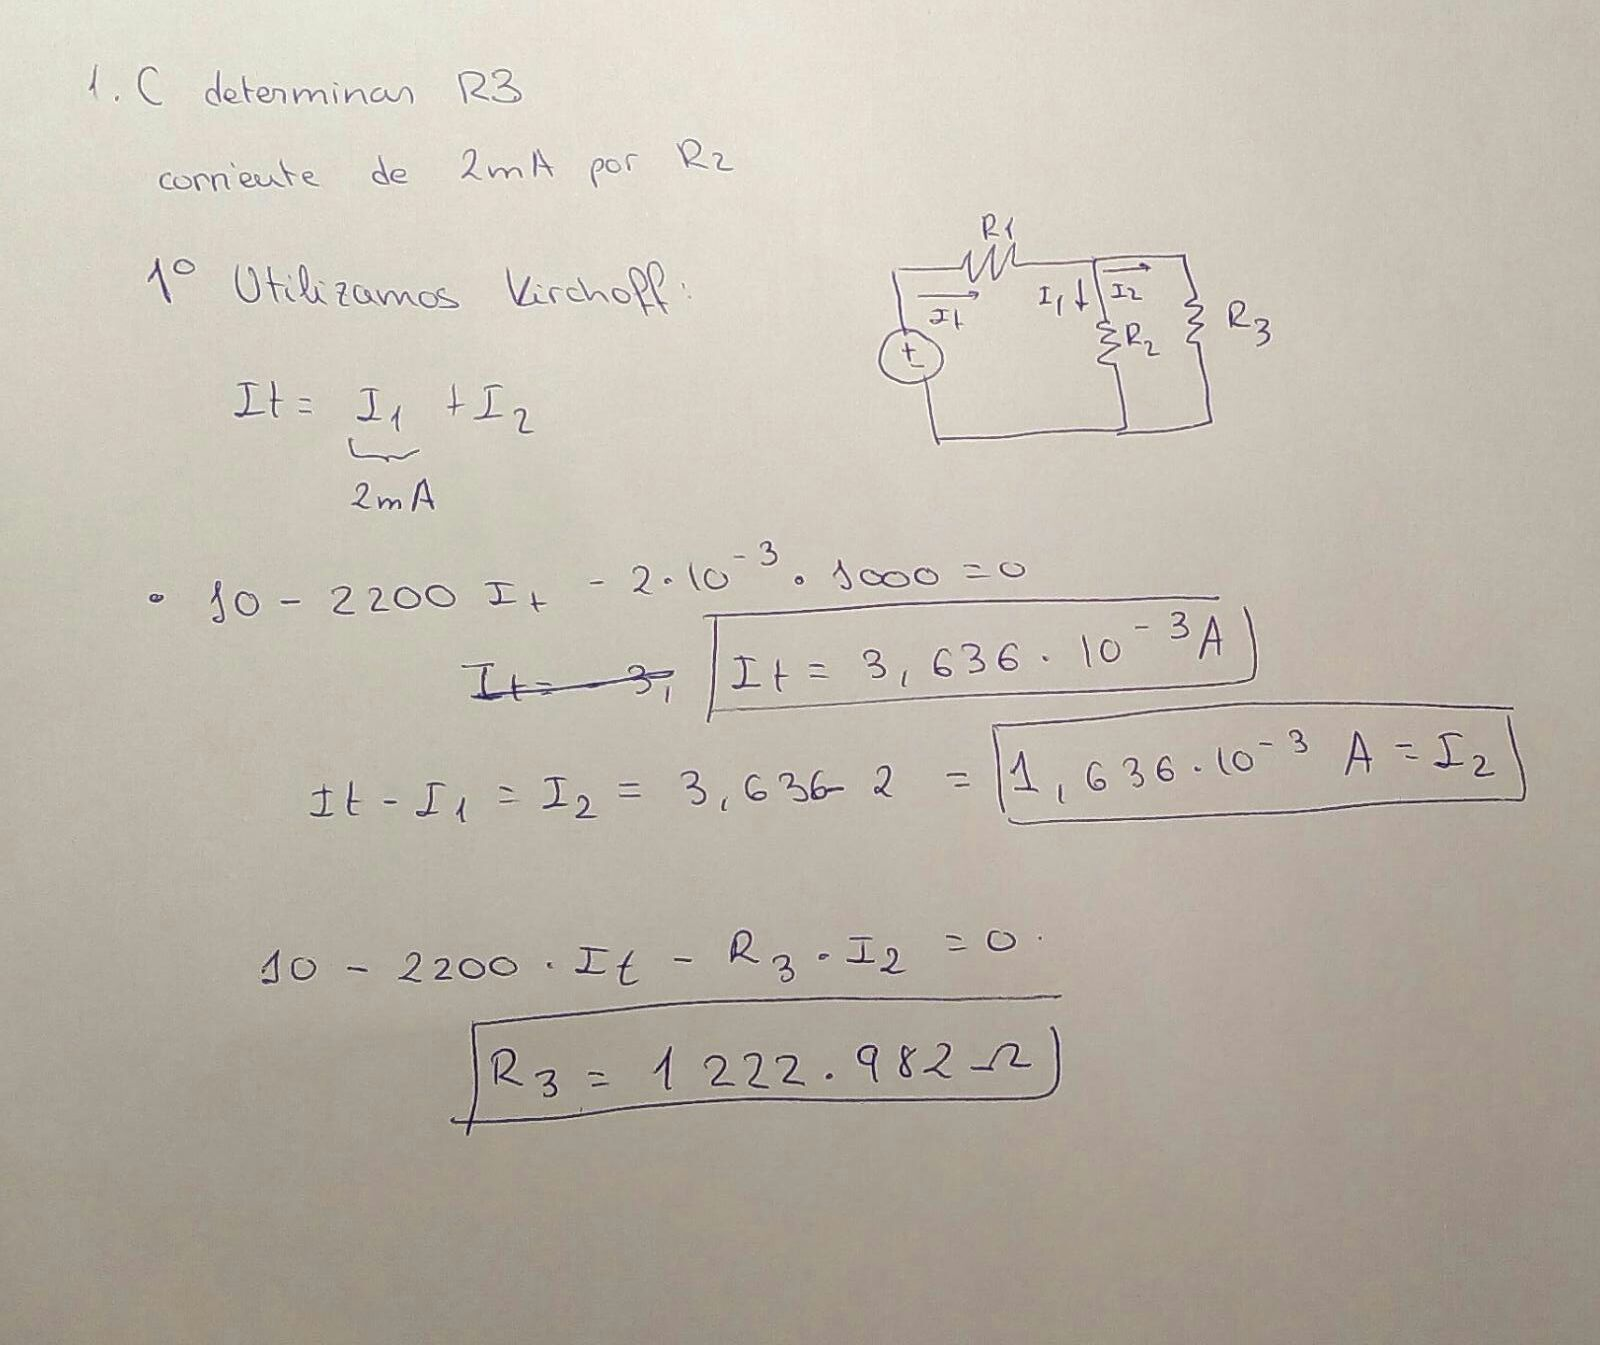 1. C determinar R3
corriente de 2mA por R2
1º Utilizamos Kirchoff:
R1
It
I1
I2
R2
R3
+
It = I1 + I2
2mA
• 10 - 2200 It - 2·10^-3 · 1000 = 0
It = 3, It = 3,636 · 10^-3 A
It - I1 = I2 = 3,636 - 2 = 1,636·10^-3 A = I2
10 - 2200 · It - R3 · I2 = 0.
R3 = 1222.982 Ω